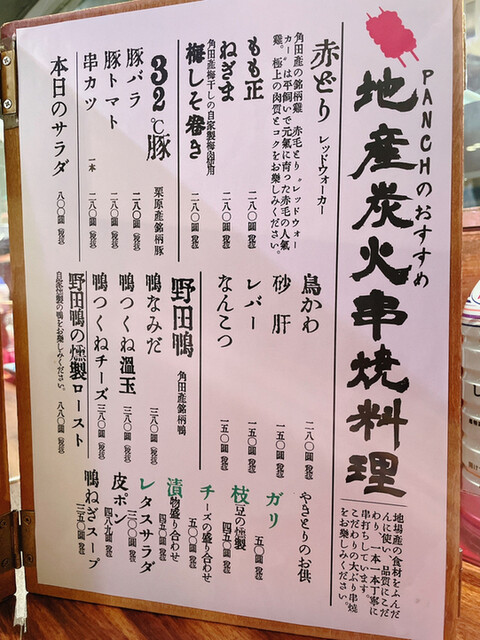 PANCHのおすすめ
地産炭火串焼料理
地場産の食材をふんだ
んに使い、品質にこだ
わり、一本一本丁寧に
串打ちしています。
こだわりの大ぶり串焼
をお楽しみください。
赤どり レッドウォーカー
角田産の銘柄雞 赤毛とり〝レッドウォー
カー〟は平飼いで元氣に育った赤毛の人氣
雞。極上の肉質とコクをお楽しみください。
もも正 二八〇圓(税込)
ねぎま 二八〇圓(税込)
角田産梅干しの自家製梅肉使用
梅しそ巻き 二八〇圓(税込)
32℃豚 栗原産銘柄豚
豚バラ 二八〇圓(税込)
豚トマト 二八〇圓(税込)
串カツ 一本 二八〇圓(税込)
本日のサラダ 八〇〇圓(税込)
鳥かわ 二八〇圓(税込)
砂肝 一五〇圓(税込)
レバー 一五〇圓(税込)
なんこつ 一五〇圓(税込)
野田鴨 角田産銘柄鴨
鴨なみだ 三八〇圓(税込)
鴨つくね温玉 三八〇圓(税込)
鴨つくねチーズ 三八〇圓(税込)
野田鴨の燻製ロースト 八八〇圓(税込)
自家燻製の鴨をお楽しみください。
やきとりのお供
ガリ 五〇圓(税込)
枝豆の燻製 四五〇圓(税込)
チーズの盛り合わせ 五〇〇圓(税込)
漬物盛り合わせ 四五〇圓(税込)
レタスサラダ 三〇〇圓(税込)
皮ポン 四八〇圓(税込)
鴨ねぎスープ 三五〇圓(税込)